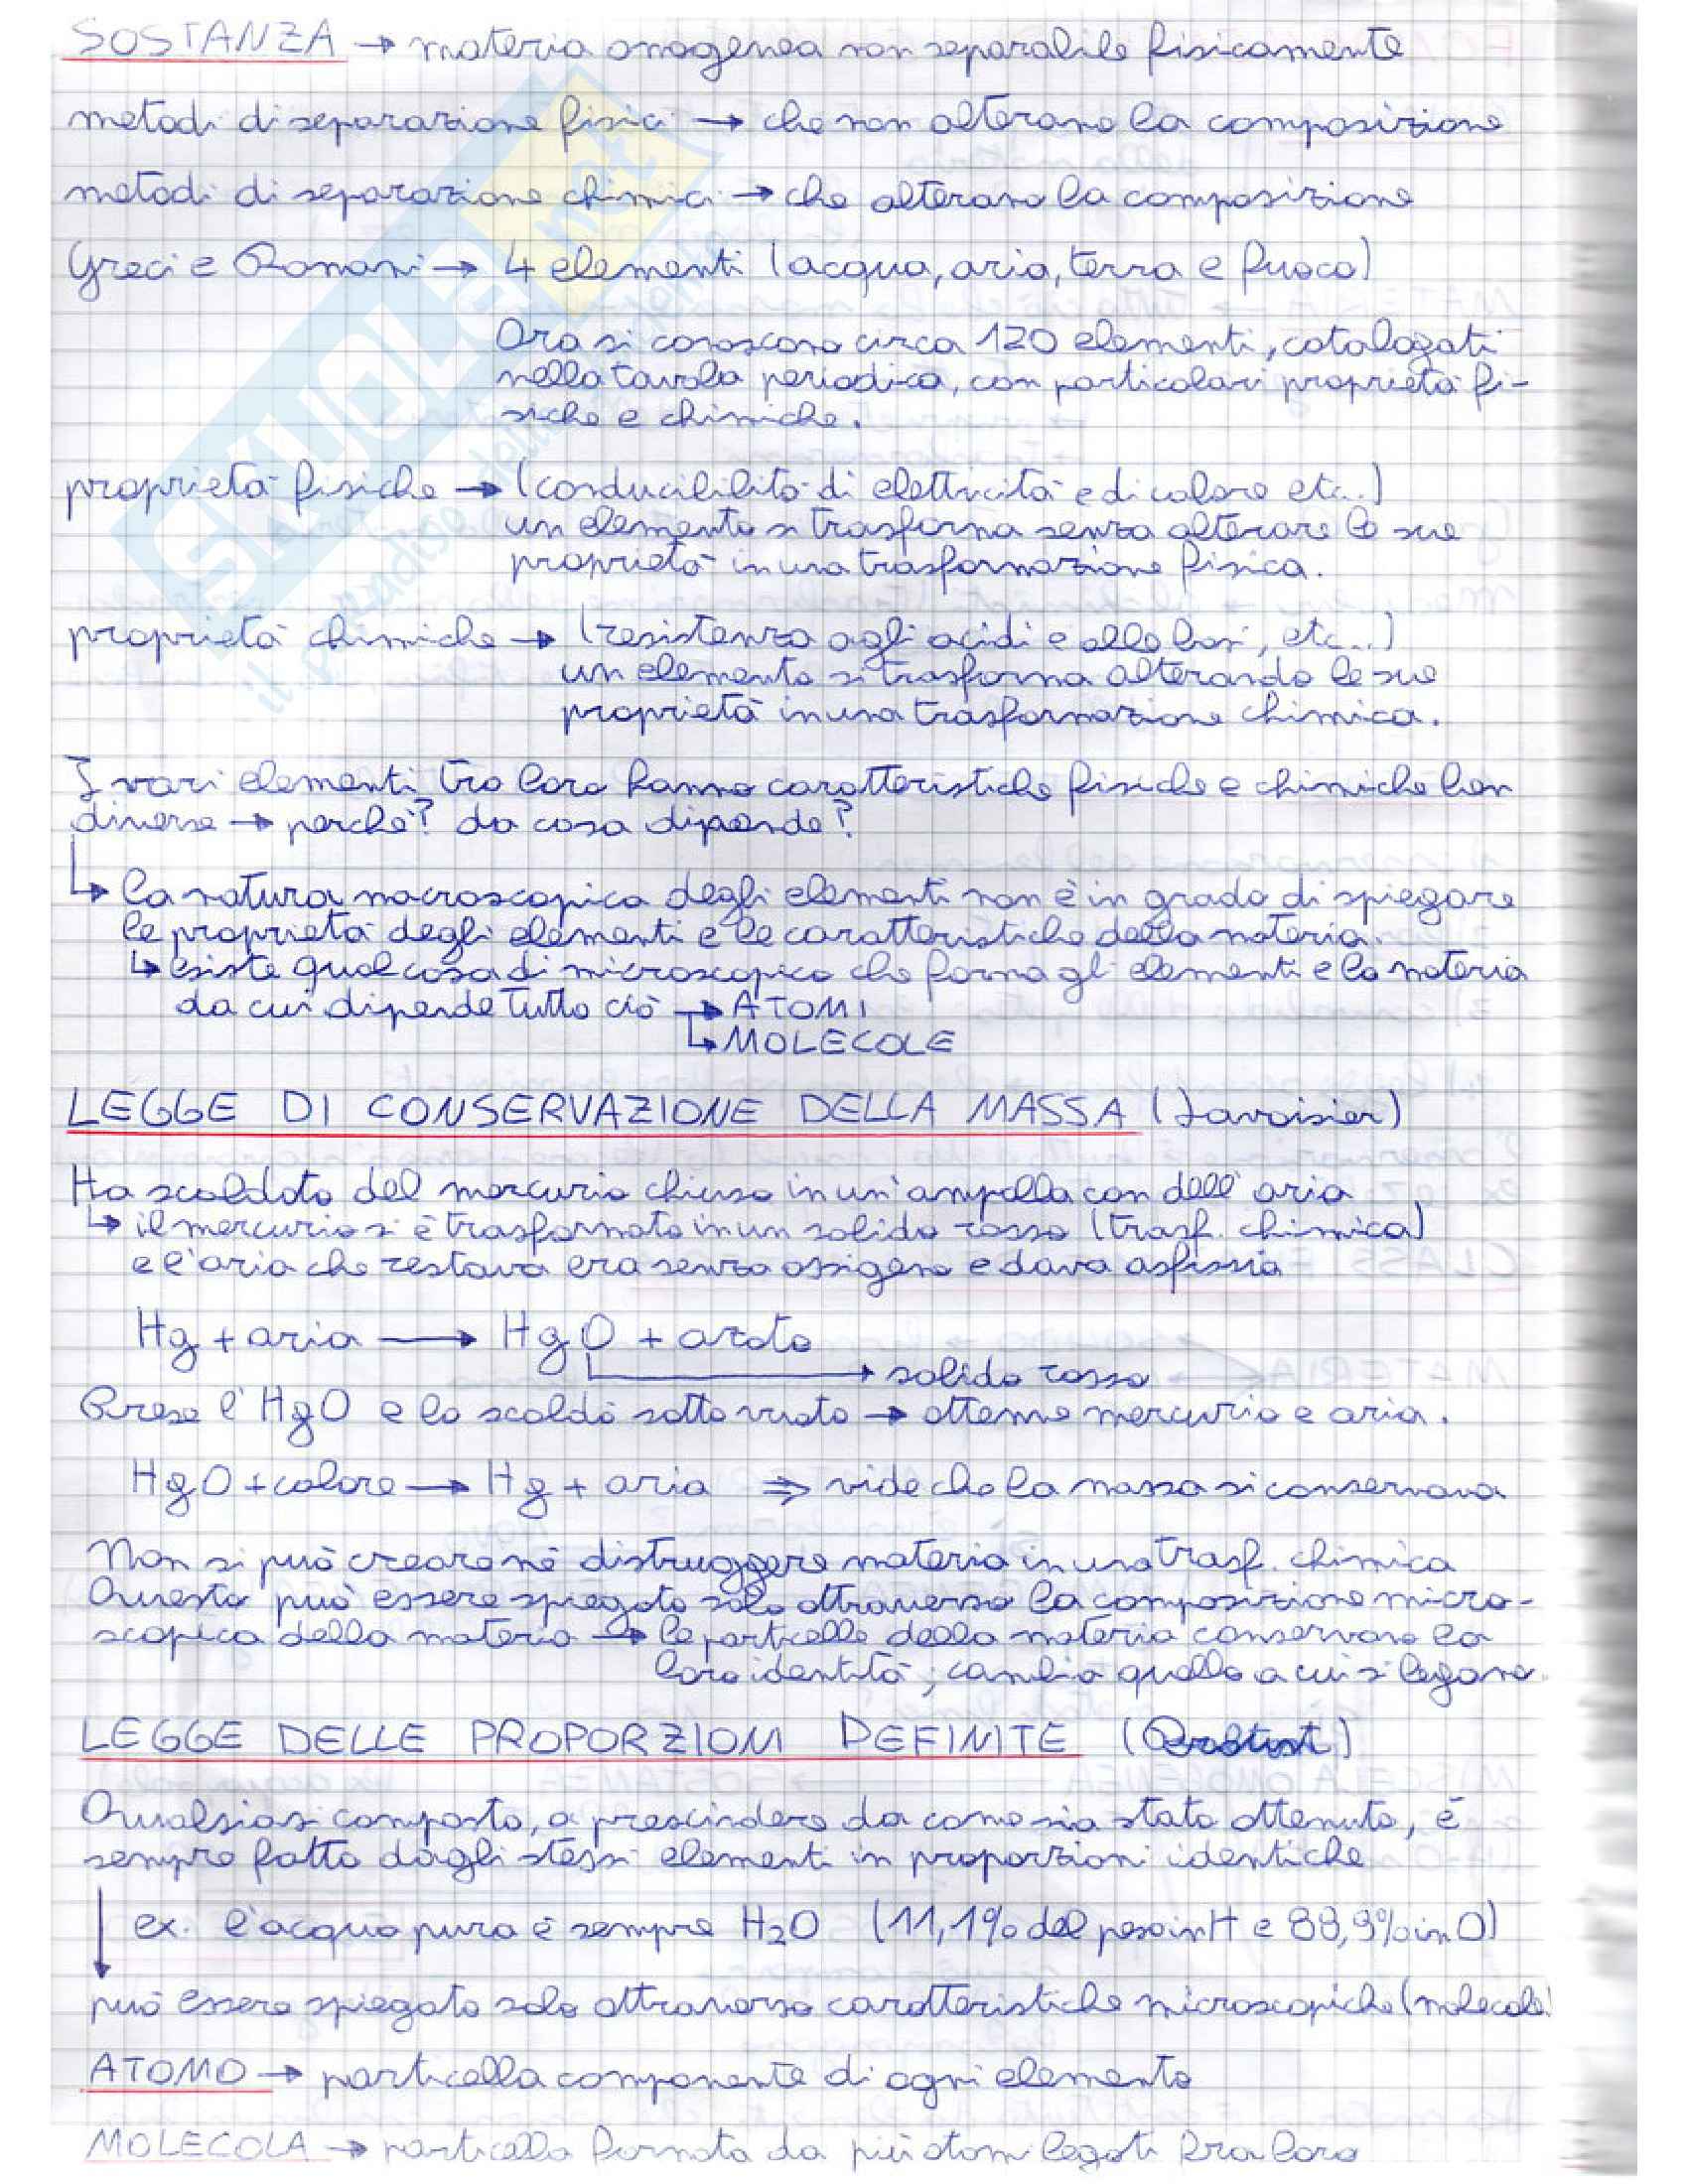 SOSTANZA → materia omogenea non separabile fisicamente
metodi di separazione fisici → che non alterano la composizione
metodi di separazione chimici → che alterano la composizione
Greci e Romani → 4 elementi (acqua, aria, terra e fuoco)
Ora si conoscono circa 120 elementi, catalogati
nella tavola periodica, con particolari proprietà fi-
siche e chimiche.
proprietà fisiche → (conducibilità di elettricità e di calore etc...)
un elemento si trasforma senza alterare le sue
proprietà in una trasformazione fisica.
proprietà chimiche → (resistenza agli acidi e alle basi, etc...)
un elemento si trasforma alterando le sue
proprietà in una trasformazione chimica.
I vari elementi tra loro hanno caratteristiche fisiche e chimiche ben
diverse → perché? da cosa dipende?
↳ la natura macroscopica degli elementi non è in grado di spiegare
le proprietà degli elementi e le caratteristiche della materia.
↳ esiste qualcosa di microscopico che forma gli elementi e la materia
da cui dipende tutto ciò → ATOMI
↳ MOLECOLE
LEGGE DI CONSERVAZIONE DELLA MASSA (Lavoisier)
Ha scaldato del mercurio chiuso in un'ampolla con dell'aria
↳ il mercurio si è trasformato in un solido rosso (trasf. chimica)
e l'aria che restava era senza ossigeno e dava asfissia
Hg + aria → HgO + azoto
→ solido rosso
Prese l'HgO e lo scaldò sotto vuoto → ottenne mercurio e aria.
HgO + calore → Hg + aria ⇒ vide che la massa si conservava
Non si può creare né distruggere materia in una trasf. chimica
Questo può essere spiegato solo attraverso la composizione micro-
scopica della materia → le particelle della materia conservano la
loro identità; cambia quello a cui si legano.
LEGGE DELLE PROPORZIONI DEFINITE (Proust)
Qualsiasi composto, a prescindere da come sia stato ottenuto, è
sempre fatto dagli stessi elementi in proporzioni identiche
ex. l'acqua pura è sempre H₂O (11,1% del peso in H e 88,9% in O)
può essere spiegato solo attraverso caratteristiche microscopiche (molecole)
ATOMO → particella componente di ogni elemento
MOLECOLA → particella formata da più atomi legati fra loro
SKUOLA.net